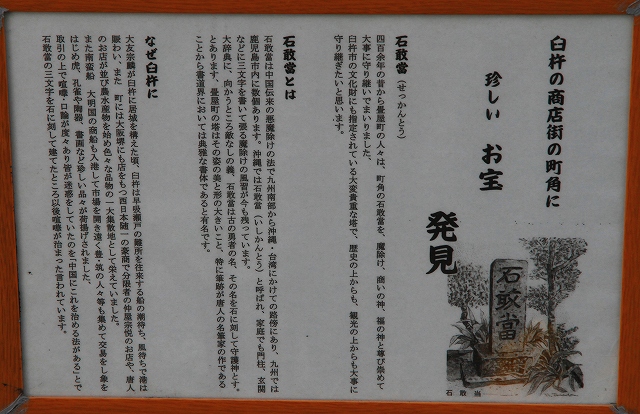 臼杵の商店街の町角に
珍しい お宝
発見
石敢當
石敢當
石敢當（せっかんとう）
四百余年の昔から畳屋町の人々は、町角の石敢當を、魔除け、商いの神、福の神と尊び崇めて
大事に守り継いでまいりました。
臼杵市の文化財にも指定されている大変貴重な塔で、歴史の上からも、観光の上からも大事に
守り継ぎたいと思います。
石敢當とは
石敢當は中国伝来の悪魔除けの法で九州南部から沖縄・台湾にかけての路傍にあり、九州では
鹿児島市内に数個あります。沖縄では石敢當（いしかんとう）と呼ばれ、家庭でも門柱、玄関
などに三文字を書いて張る魔除けの風習が今も残っています。
大辞典に、向かうところ敵なしの義、石敢當は古の勇者の名、その名を石に刻して守護神とす。
とあります。畳屋町の塔はその姿の美と形の大きいこと、特に筆跡が唐人の名筆家の作である
ことから書道界においては典雅な書体であると有名です。
なぜ臼杵に
大友宗麟が臼杵に居城を構えた頃、臼杵は早吸瀬戸の難所を往来する船の潮待ち、風待ちで港は
賑わい、また 町には大阪堺にも店をもつ西日本随一の豪商で分限者の仲屋宗悦のお店や、唐人
のお店が並び農水産物を始め色々な品物の一大集散地として栄えていました。
また南蛮船 大明国の商船も入港して市場を開き遠く豊・筑の人々等も集めて交易をし象を
はじめ虎、孔雀や陶器、書画など珍しい品々が荷揚げされました。
取引の上で喧嘩・口論が度々あり皆が迷惑をしていたのを「中国にこれを治める法がある」とて
石敢當の三文字を石に刻して建てたところ以後喧嘩が治まった と言われています。